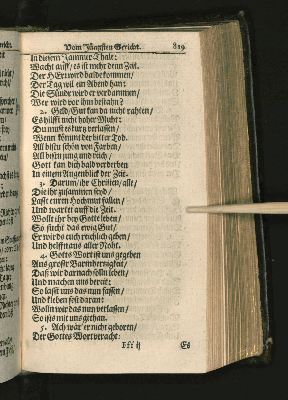 Vom Jüngsten Gericht. 819
In diesem Jammer-Thal:
Wacht auff / es ist mehr denn Zeit.
Der HErr wird balde kommen /
Der Tag wil ein Abend han:
Die Sünder wird er verdammen /
Wer wird vor ihm bestahn?
2. Geld / Gut kan da nicht rahten /
Es hilfft nicht hoher Muht:
Du must es kurtz verlassen /
Wenn kömmt der bitter Tod.
All bistu schön von Farben /
All bistu jung und reich /
Gott kan dich bald verderben
In einem Augenblick der Zeit.
3. Darum / ihr Christen / alle /
Die ihr zusammen seyd /
Last euren Hochmut fallen /
Und wartet auff die Zeit.
Wollt ihr bey Gott leben /
So sucht das ewig Gut /
Er wird es euch reichlich geben /
Und helffen aus aller Noht.
4. Gotts Wort ist uns gegeben
Aus grosser Barmhertzigkeit /
Daß wir darnach solln leben /
Und machen uns bereit:
So lasst uns das nun fassen /
Und kleben fest daran:
Wolln wir das nun verlassen /
So ists mit uns gethan.
5. Ach wär er nicht geboren /
Der Gottes Wort veracht:
Fff ij Es